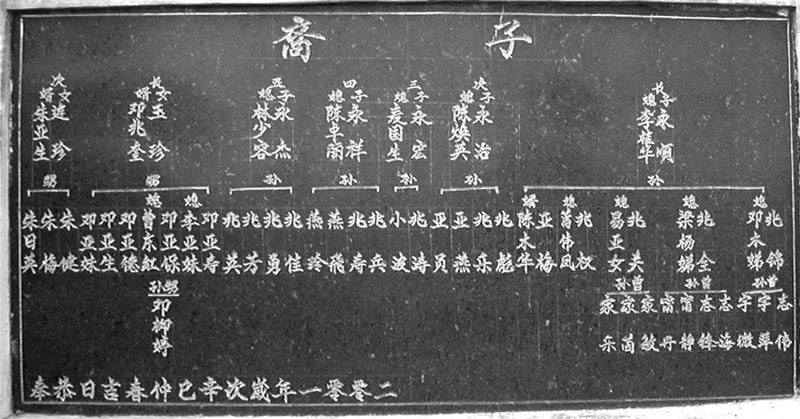 子裔
长子永順
媳李桂华
孙
次子永治
媳陈焕英
孙
三子永宏
媳麦国生
孙
四子永祥
媳陈卓丽
孙
五子永杰
媳林少容
孙
长女玉珍
婿邓兆奎
甥
次女莲珍
婿朱亚生
甥
兆锦
媳邓木娣
曾孙
志伟
宇萍
宇微
兆全
媳梁杨娣
曾孙
志海
志锋
甯静
甯丹
兆夫
媳易亚女
曾孙
家敏
家茵
家乐
兆权
媳莴伟凤
亚梅
婿陈木华
兆彪
兆乐
亚燕
亚员
兆涛
小波
兆兵
兆寿
燕飛
燕玲
兆佳
兆勇
兆芳
兆英
邓亚寿
媳李亚妹
邓亚保
媳曾东紅
甥孙
邓柳婷
邓亚德
邓亚生
邓亚妹
朱健
朱梅
朱日英
二零零一年歲次辛巳仲春吉日恭奉